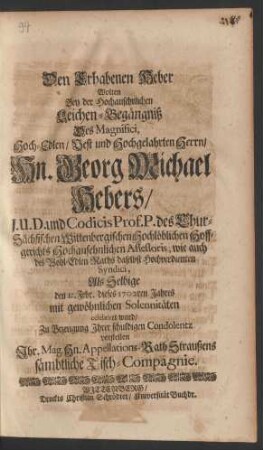 Den Erhabenen Heber
Wolten
Bey der Hochansehnlichen
Leichen-Begängniß
Des Magnifici,
Hoch-Edlen/ Vest und Hochgelahrten Herrn/
Hn. Georg Michael
Hebers/
J. U. D. und Codicis Prof. P. des Chur-
Sächsischen Wittenbergischen Hochlöblichen Hoff-
gerichts Hochansehnlichen Assessoris, wie auch
des Wohl-Edlen Raths daselbst Hochverdienten
Syndici,
Als Selbige
den Febr. dieses 1702ten Jahres
mit gewöhnlichen Solennitäten
celebriret wurd/
Zu Bezeugung Ihrer schuldigen Condolentz
vorstellen
Ihr. Mag. Hn. Appellations-Rath Straußens
sämbtliche Tisch-Compagnie.
WITTENBERG/
Druckts Christian Schrödter/ Universität Buchdr.